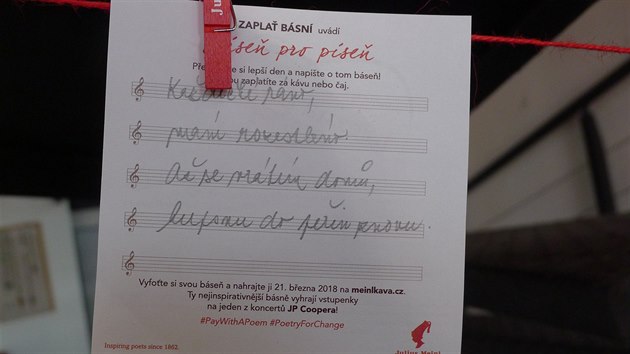 Ju
ZAPLAŤ BÁSNÍ uvádí
píseň pro píseň
si lepší den a napište o tom báseň!
zaplatíte za kávu nebo čaj.
ráno,
mám rozestláno.
Až se vrátím domů,
lupsnu do peřin znovu.
Vyfoťte si svou báseň a nahrajte ji 21. března 2018 na meinlkava.cz.
Ty nejinspirativnější básně vyhrají vstupenky
na jeden z koncertů JP Coopera!
#PayWithAPoem #PoetryForChange
Inspiring poets since 1862.
Julius Meinl